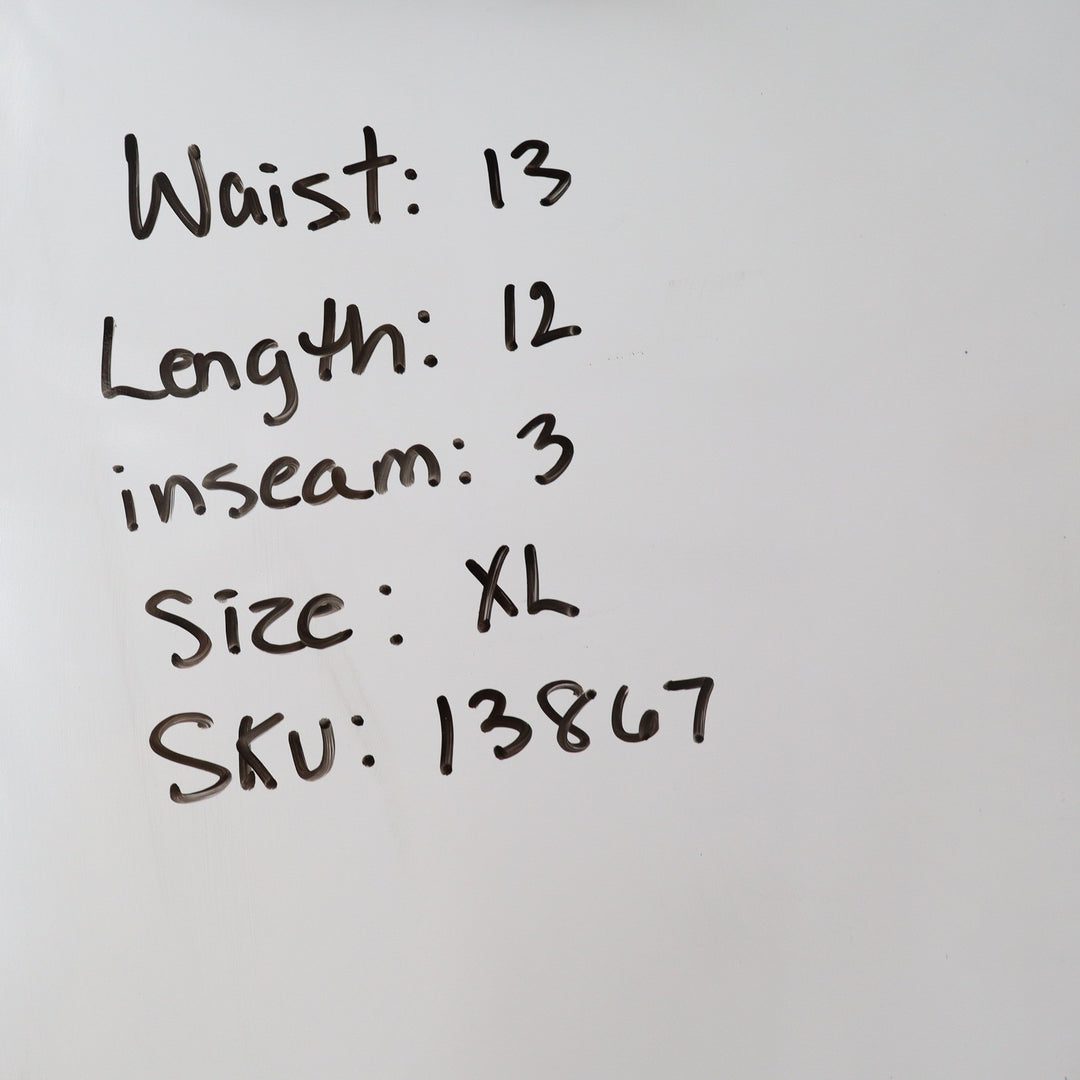 Waist: 13
Length: 12
inseam: 3
Size: XL
SKU: 13867